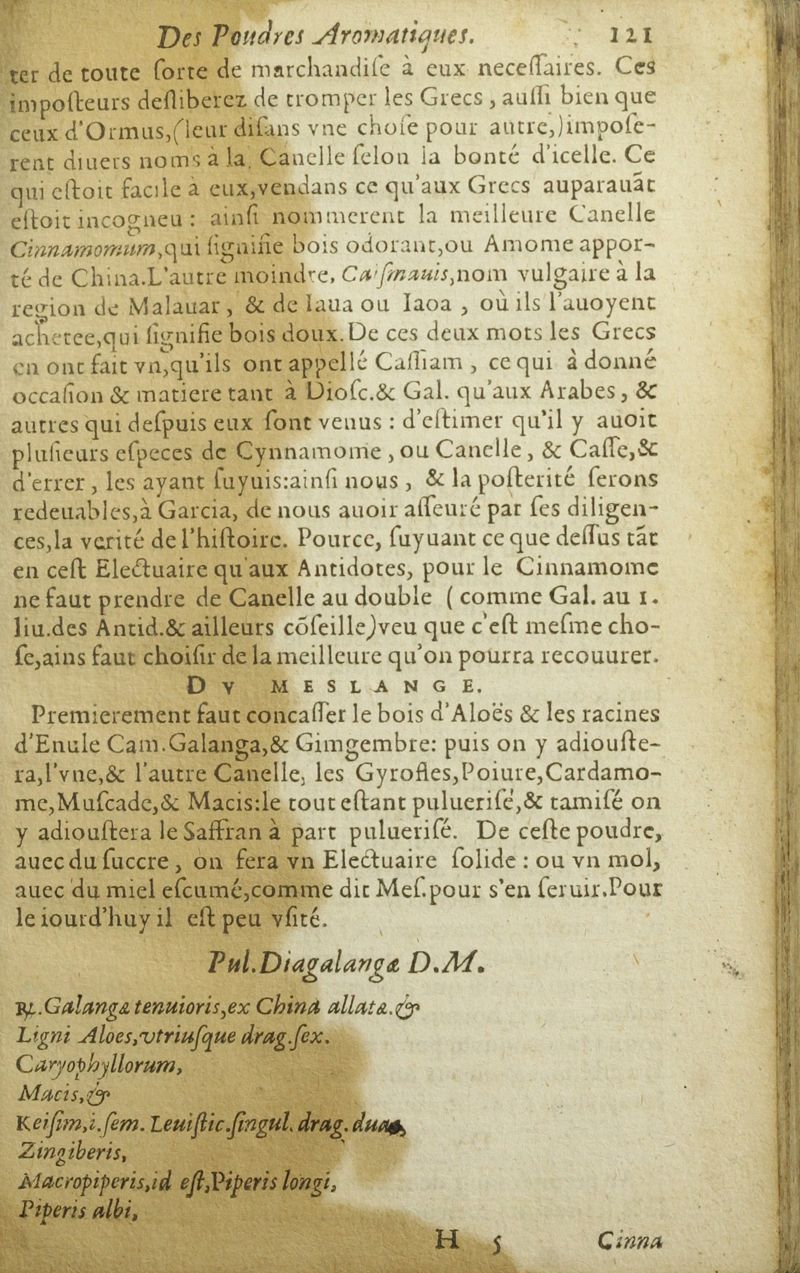 Des Poudres Aromatiques. 121
ter de toute ſorte de marchandiſe à eux neceſſaires. Ces
impoſteurs deſliberez de tromper les Grecs, auſſi bien que
ceux d'Ormus, (leur diſans vne choſe pour autre,) impoſe-
rent diuers noms à la, Canelle ſelon la bonté d'icelle. Ce
qui eſtoit facile à eux, vendans ce qu'aux Grecs auparauãt
eſtoit incogneu : ainſi nommerent la meilleure Canelle
Cinnamomum, qui ſignifie bois odorant, ou Amome appor-
té de China. L'autre moindre, Caiſmauis, nom vulgaire à la
region de Malauar, & de Iaua ou Iaoa, où ils l'auoyent
achetee, qui ſignifie bois doux. De ces deux mots les Grecs
en ont fait vn, qu'ils ont appellé Caſſiam, ce qui à donné
occaſion & matiere tant à Dioſc. & Gal. qu'aux Arabes, &
autres qui deſpuis eux ſont venus : d'eſtimer qu'il y auoit
pluſieurs eſpeces de Cynnamome, ou Canelle, & Caſſe, &
d'errer, les ayant ſuyuis: ainſi nous, & la poſterité ſerons
redeuables, à Garcia, de nous auoir aſſeuré par ſes diligen-
ces, la verité de l'hiſtoire. Pource, ſuyuant ce que deſſus tãt
en ceſt Electuaire qu'aux Antidotes, pour le Cinnamome
ne faut prendre de Canelle au double (comme Gal. au 1.
liu. des Antid. & ailleurs cõſeille) veu que c'eſt meſme cho-
ſe, ains faut choiſir de la meilleure qu'on pourra recouurer.
DV MESLANGE.
Premierement faut concaſſer le bois d'Aloës & les racines
d'Enule Cam. Galanga, & Gimgembre: puis on y adiouſte-
ra, l'vne, & l'autre Canelle, les Gyrofles, Poiure, Cardamo-
me, Muſcade, & Macis: le tout eſtant puluerisé, & tamiſé on
y adiouſtera le Saffran à part pulueriſé. De ceſte poudre,
auec du ſuccre, on fera vn Electuaire ſolide : ou vn mol,
auec du miel eſcumé, comme dit Meſ. pour s'en ſeruir. Pour
le iourd'huy il eſt peu vſité.
Pul. Diagalangæ D. M.
℞. Galangæ tenuioris, ex China allatæ. &
Ligni Aloes, vtriuſque drag. ſex.
Caryophyllorum,
Macis, &
Keiſim, i. ſem. Leuiſtic. ſingul. drag. duas,
Zingiberis,
Macropiperis, id eſt, Piperis longi,
Piperis albi,
H 5 Cinna